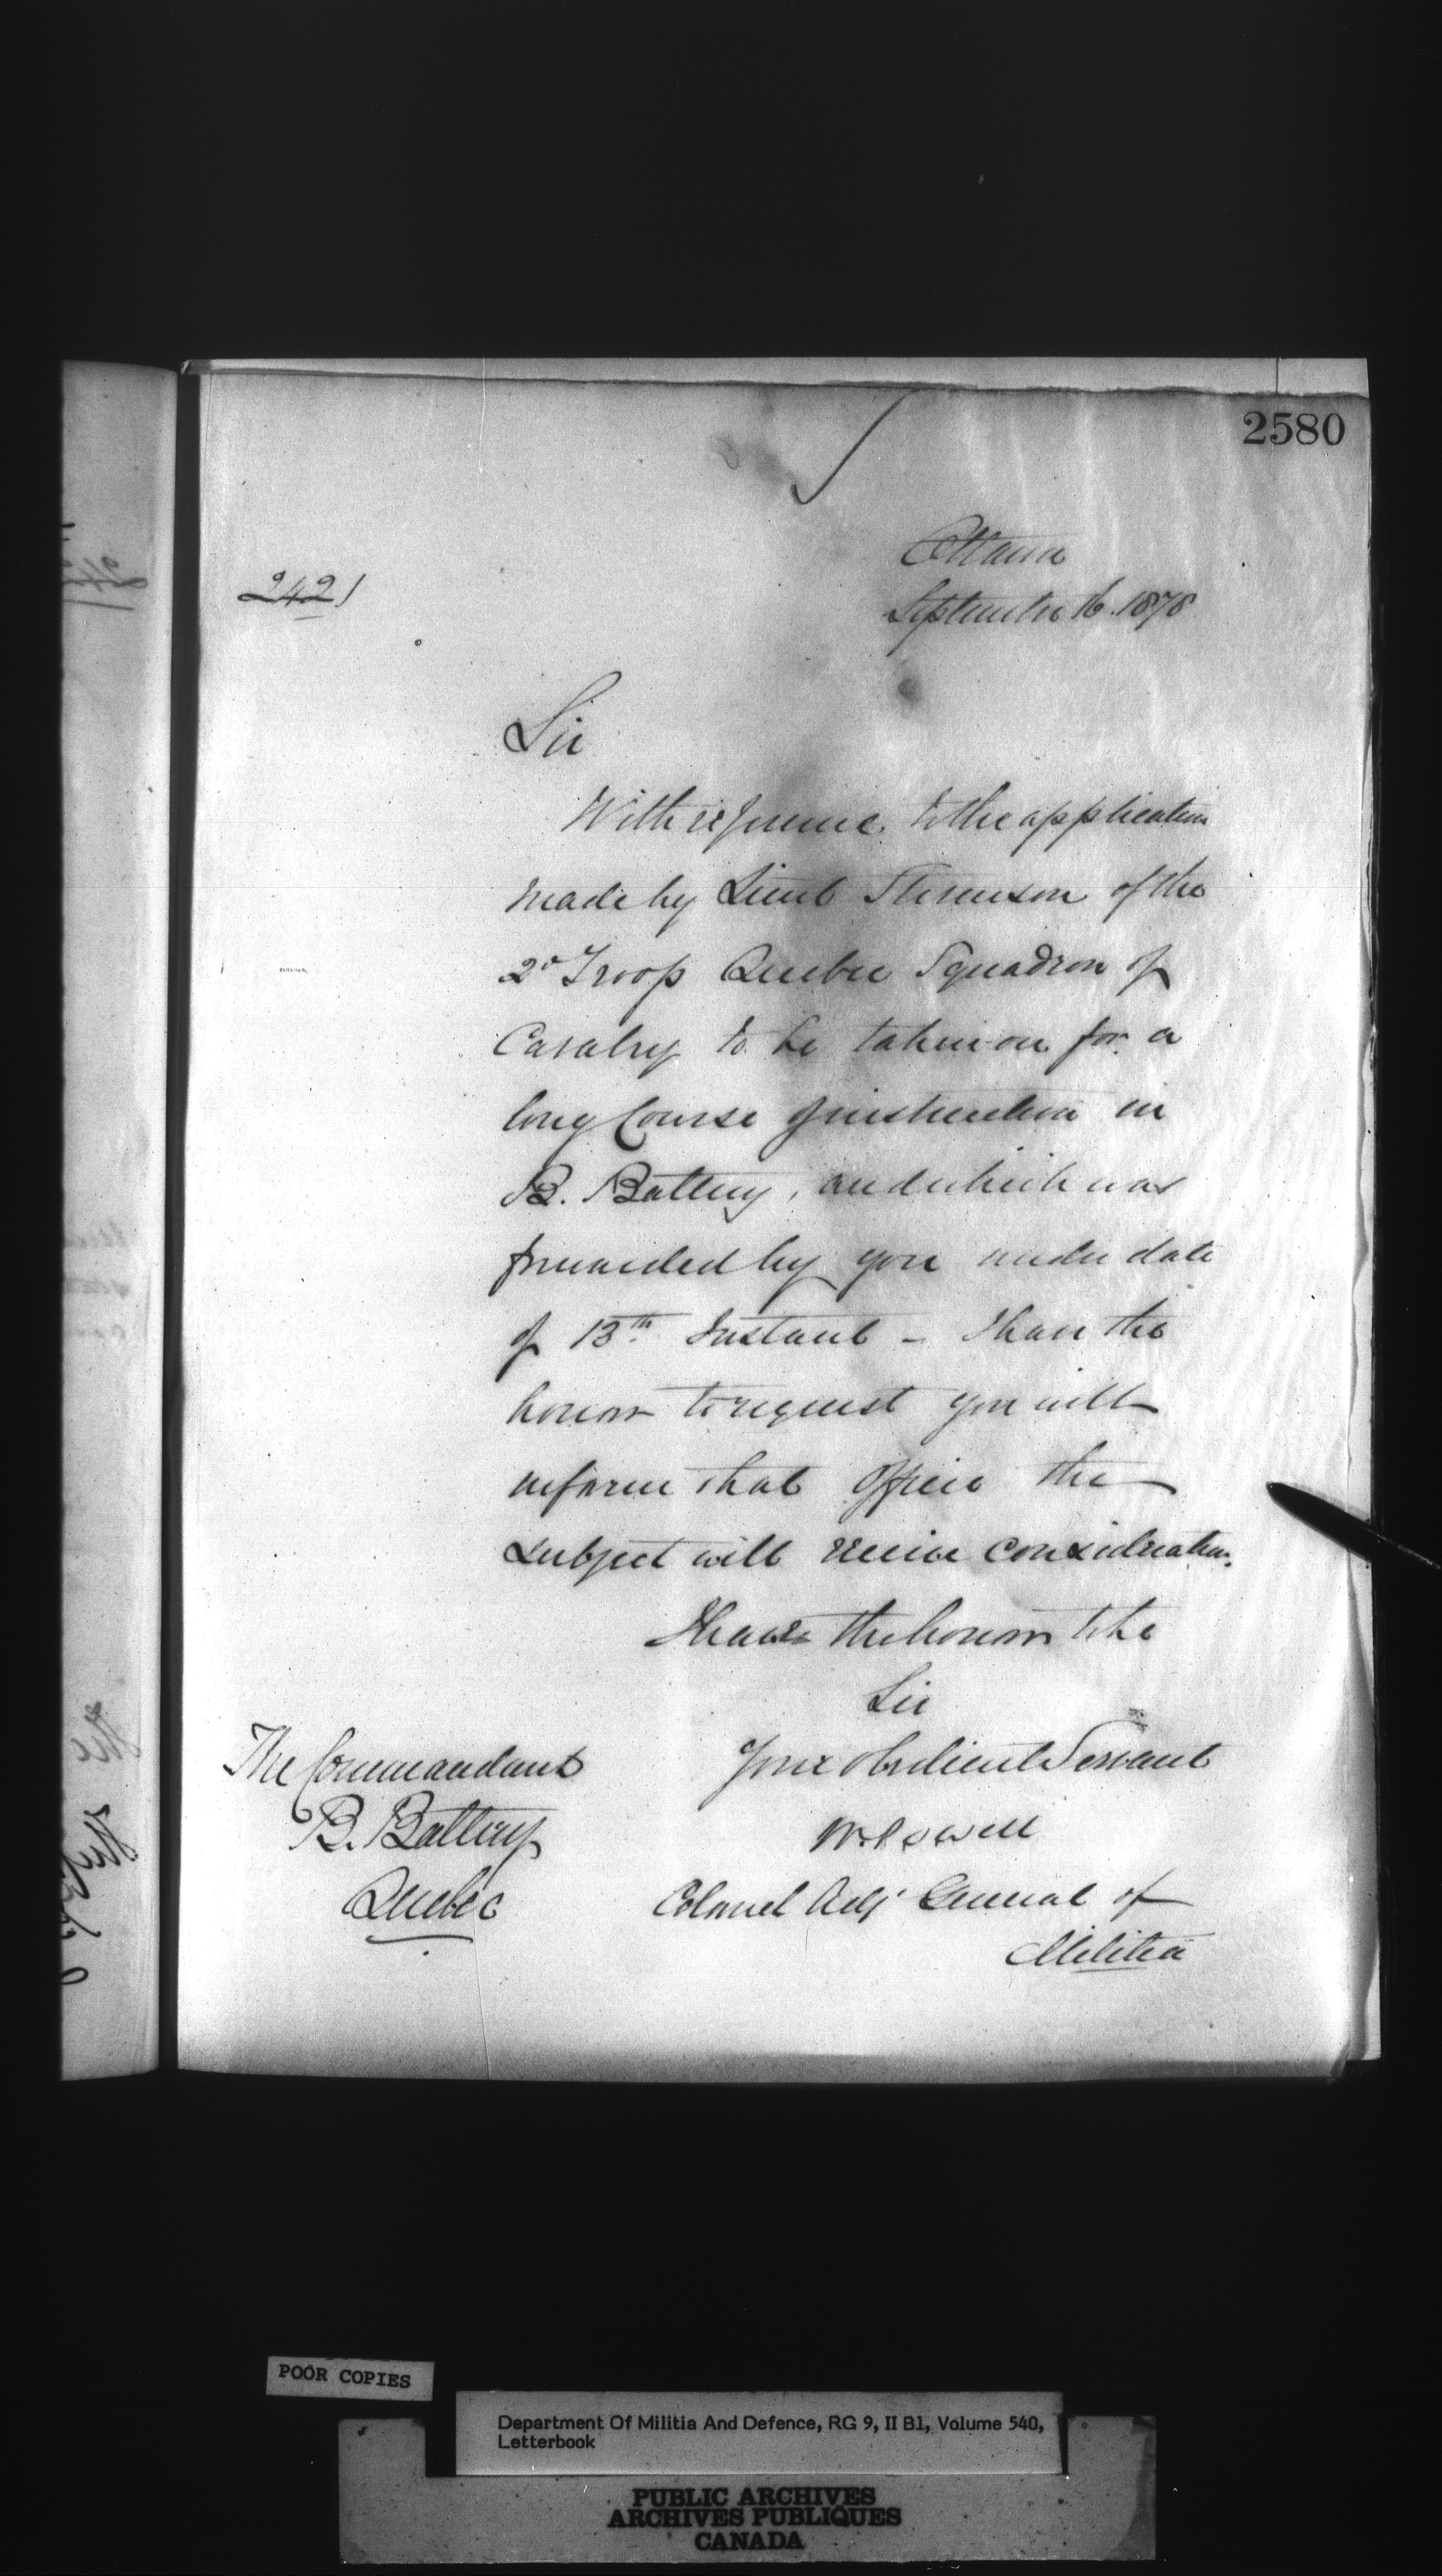 2580
Ottawa
2421
September 16. 1878
Sir
With reference to the application
made by Lieut Stevenson of the
2d Troop Quebec Squadron of
Cavalry to be taken on for a
long Course of instruction in
B. Battery, and which was
forwarded by you under date
of 13th Instant - I have the
honor to request you will
inform that Officer the
subject will receive consideration.
I have the honor to be
Sir
Your obedient Servant
W. Powell
Colonel Adjt General of
Militia
The Commandant
B. Battery
Quebec
POOR COPIES
Department Of Militia And Defence, RG 9, II B1, Volume 540,
Letterbook
PUBLIC ARCHIVES
ARCHIVES PUBLIQUES
CANADA